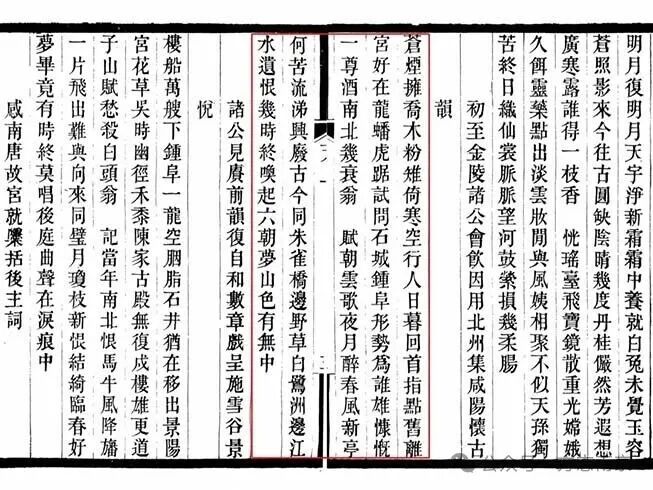 明月復明月天宇淨新霜霜中養就白兔未覺玉容
蒼照影來今往古圓缺陰晴幾度丹桂儼然芳遐想
廣寒露誰得一枝香　恍瑤臺飛寶鏡散重光嫦娥
久餌靈藥點出淡雲妝閒與風姨相聚不似天孫獨
苦終日織仙裳脈脈望河鼓縈損幾柔腸
初至金陵諸公會飲因用北州集咸陽懷古
韻
蒼煙擁喬木粉雉倚寒空行人日暮回首指點舊離
宮好在龍蟠虎踞試問石城鍾阜形勢為誰雄慷慨
一尊酒南北幾衰翁　賦朝雲歌夜月醉春風新亭
何苦流涕興廢古今同朱雀橋邊野草白鷺洲邊江
水遺恨幾時終喚起六朝夢山色有無中
諸公見賡前韻復自和數章戲呈施雪谷景
悅
樓船萬艘下鍾阜一龍空胭脂石井猶在移出景陽
宮花草吳時幽徑禾黍陳家古殿無復戍樓雄更道
子山賦愁殺白頭翁　記當年南北恨馬牛風降旛
一片飛出難與向來同璧月瓊枝新恨結綺臨春好
夢畢竟有時終莫唱後庭曲聲在淚痕中
感南唐故宮就檃括後主詞
公众号